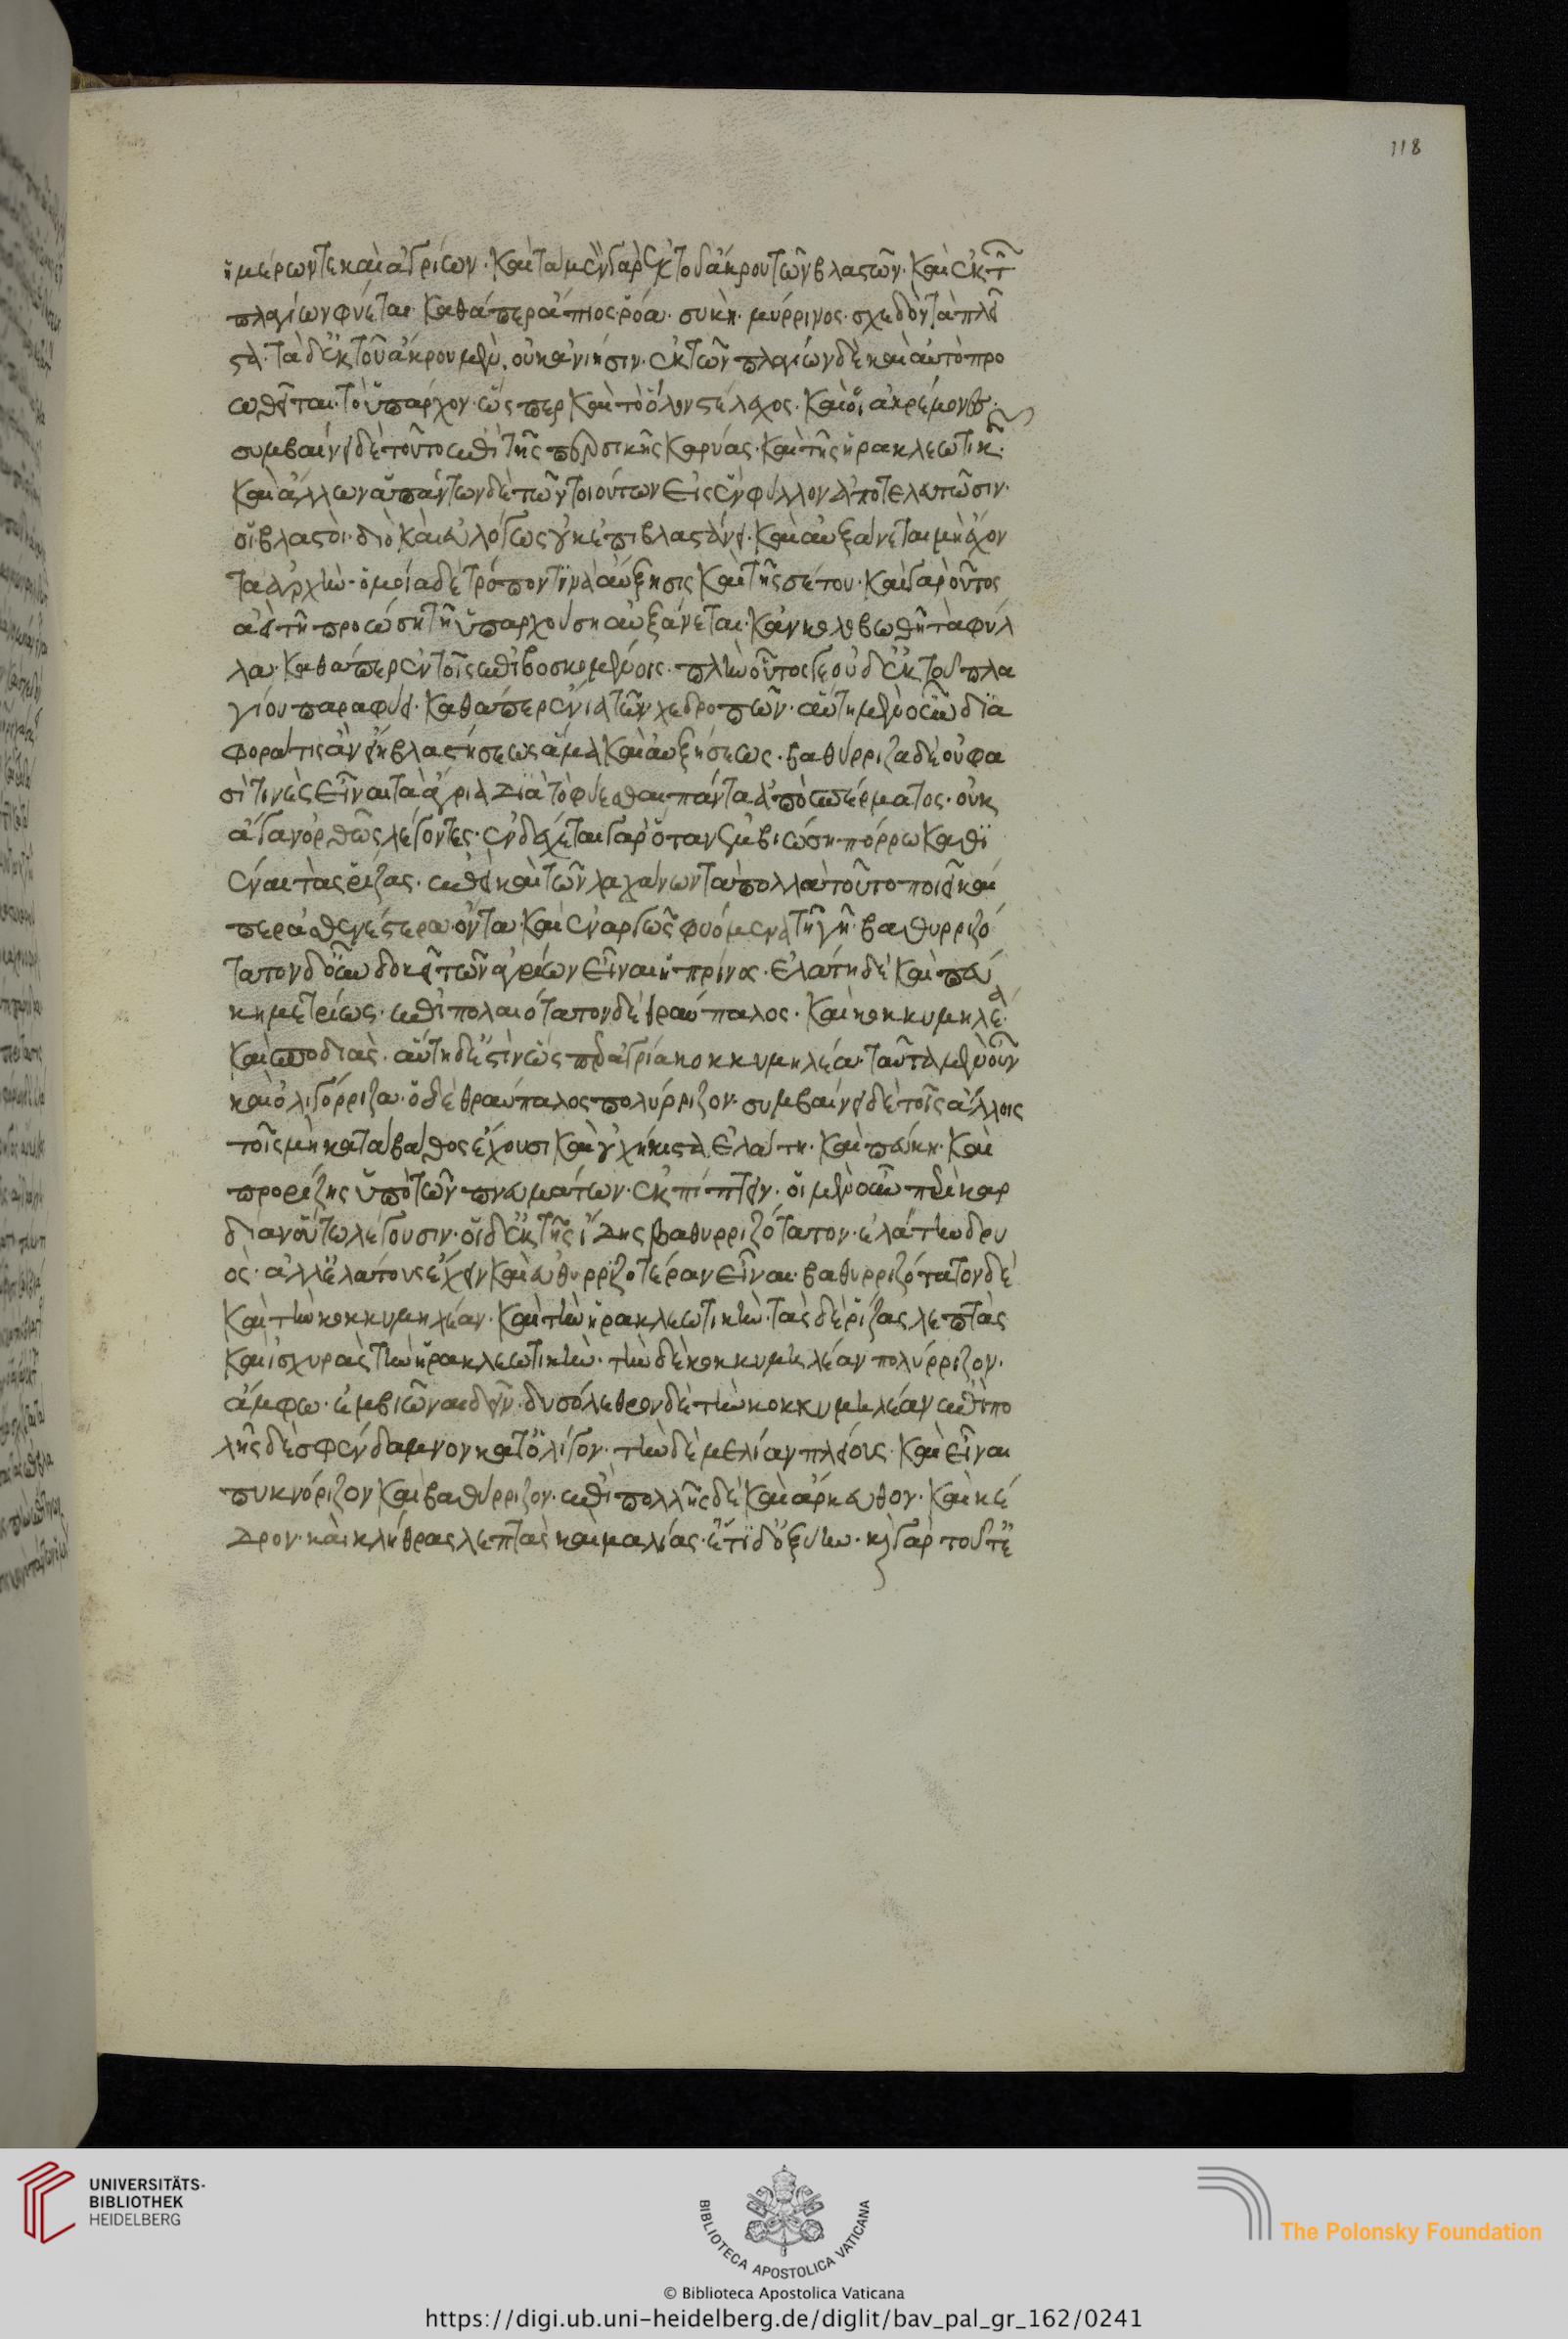 118
ἡμέρων τε καὶ ἀγρίων· καὶ τὰ μὲν γὰρ ἐκ τοῦ ἄκρου τῶν βλαστῶν· καὶ ἐκ τῶν
πλαγίων φύεται· καθάπερ ἄπιος· ῥόα· συκῆ· μύρρινος· σχεδὸν τὰ πλεῖ
στα· τὰ δ' ἐκ τοῦ ἄκρου μὲν οὐκ ἀνίησιν· ἐκ τῶν πλαγίων δὲ καὶ αὐτὸ προ
ωθεῖται· τὸ ὑπάρχον· ὥσπερ καὶ τὸ ὅλον στέλεχος· καὶ οἱ ἀκρέμονες·
συμβαίνει δὲ τοῦτο ἐπὶ τῆς περσικῆς καρύας· καὶ τῆς ἡρακλεωτικῆς·
καὶ ἄλλων ἁπάντων δὲ τῶν τοιούτων εἰς ἓν φύλλον ἀποτελευτῶσιν·
οἱ βλαστοί· διὸ καὶ εὐλόγως οὐκ ἐπιβλαστάνει· καὶ αὐξάνεται μὴ ἔχον
τα ἀρχήν· ὁμοία δὲ τρόπον τινὰ αὔξησις καὶ τῆς σίτου· καὶ γὰρ οὗτος
ἀεὶ τῇ προώσῃ τῇ ὑπαρχούσῃ αὐξάνεται· κἂν κολοβωθῇ τὰ φύλ
λα· καθάπερ ἐν τοῖς ἐπιβοσκομένοις· πλὴν οὗτός γε οὐδ' ἐκ τοῦ πλα
γίου παραφύει· καθάπερ ἔνια τῶν χεδροπῶν· αὕτη μὲν οὖν δια
φορά τις ἂν εἴη βλαστήσεως ἅμα καὶ αὐξήσεως· βαθύρριζα δὲ οὔ φα
σί τινες εἶναι τὰ ἄγρια διὰ τὸ φύεσθαι πάντα ἀπὸ σπέρματος· οὐκ
ἄγαν ὀρθῶς λέγοντες· ἐνδέχεται γὰρ ὅταν ἐμβιώσῃ πόρρω καθι
έναι τὰς ῥίζας· ἐπεὶ καὶ τῶν λαχάνων τὰ πολλὰ τοῦτο ποιεῖ καί
περ ἀσθενέστερα ὄντα· καὶ ἐναργῶς φυόμενα τῇ γῇ· βαθυρριζό
τατον δ' οὖν δοκεῖ τῶν ἀγρίων εἶναι ἡ πρίνος· ἐλάτη δὲ καὶ πεύ
κη μετρίως· ἐπιπολαιότατον δὲ θραύπαλος· καὶ κοκκυμηλέα·
καὶ σποδιάς· αὕτη δ' ἐστὶν ὥσπερ ἀγρία κοκκυμηλέα· ταῦτα μὲν οὖν
καὶ ὀλιγόρριζα· ὁ δὲ θραύπαλος πολύρριζον· συμβαίνει δὲ τοῖς ἄλλοις
τοῖς μὴ κατὰ βάθος ἔχουσι καὶ οὐχ ἥκιστα ἐλάτη· καὶ πεύκη· καὶ
προρρίζης ὑπὸ τῶν πνευμάτων· ἐκπίπτειν· οἱ μὲν οὖν περὶ ἀρκα
δίαν οὕτω λέγουσιν· οἱ δ' ἐκ τῆς ἴδης βαθυρριζότατον· ἐλάτην δρυ
ός· ἀλλ' ἐλάττους ἔχειν καὶ εὐθυρριζοτέραν εἶναι· βαθυρριζότατον δὲ
καὶ τὴν κοκκυμηλέαν· καὶ τὴν ἡρακλεωτικήν· τὰς δὲ ῥίζας λεπτὰς
καὶ ἰσχυρὰς τὴν ἡρακλεωτικήν· τὴν δὲ κοκκυμηλέαν πολύρριζον·
ἄμφω· ἐμβιῶναι δεῖν· δυσόλεθρον δὲ τὴν κοκκυμηλέαν ἐπιπο
λῆς δὲ σφένδαμνον καὶ ὀλίγον· τὴν δὲ μελίαν πλείους· καὶ εἶναι
πυκνόριζον καὶ βαθύρριζον· ἐπὶ πολλῆς δὲ καὶ ἄρκευθον· καὶ κέ
δρον· καὶ κλήθρας λεπτὰς καὶ μαλίας· ἔτι δ' ὀξύην· καὶ γὰρ τοῦτ' ἐ
UNIVERSITÄTS-
BIBLIOTHEK
HEIDELBERG
BIBLIOTECA APOSTOLICA VATICANA
The Polonsky Foundation
© Biblioteca Apostolica Vaticana
https://digi.ub.uni-heidelberg.de/diglit/bav_pal_gr_162/0241